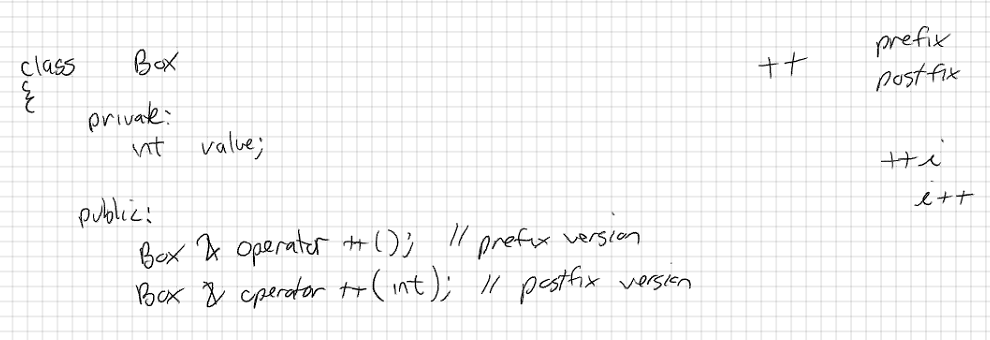 class Box
{
private:
int value;
public:
Box & operator ++(); // prefix version
Box & operator ++(int); // postfix version
++ prefix
postfix
++i
i++